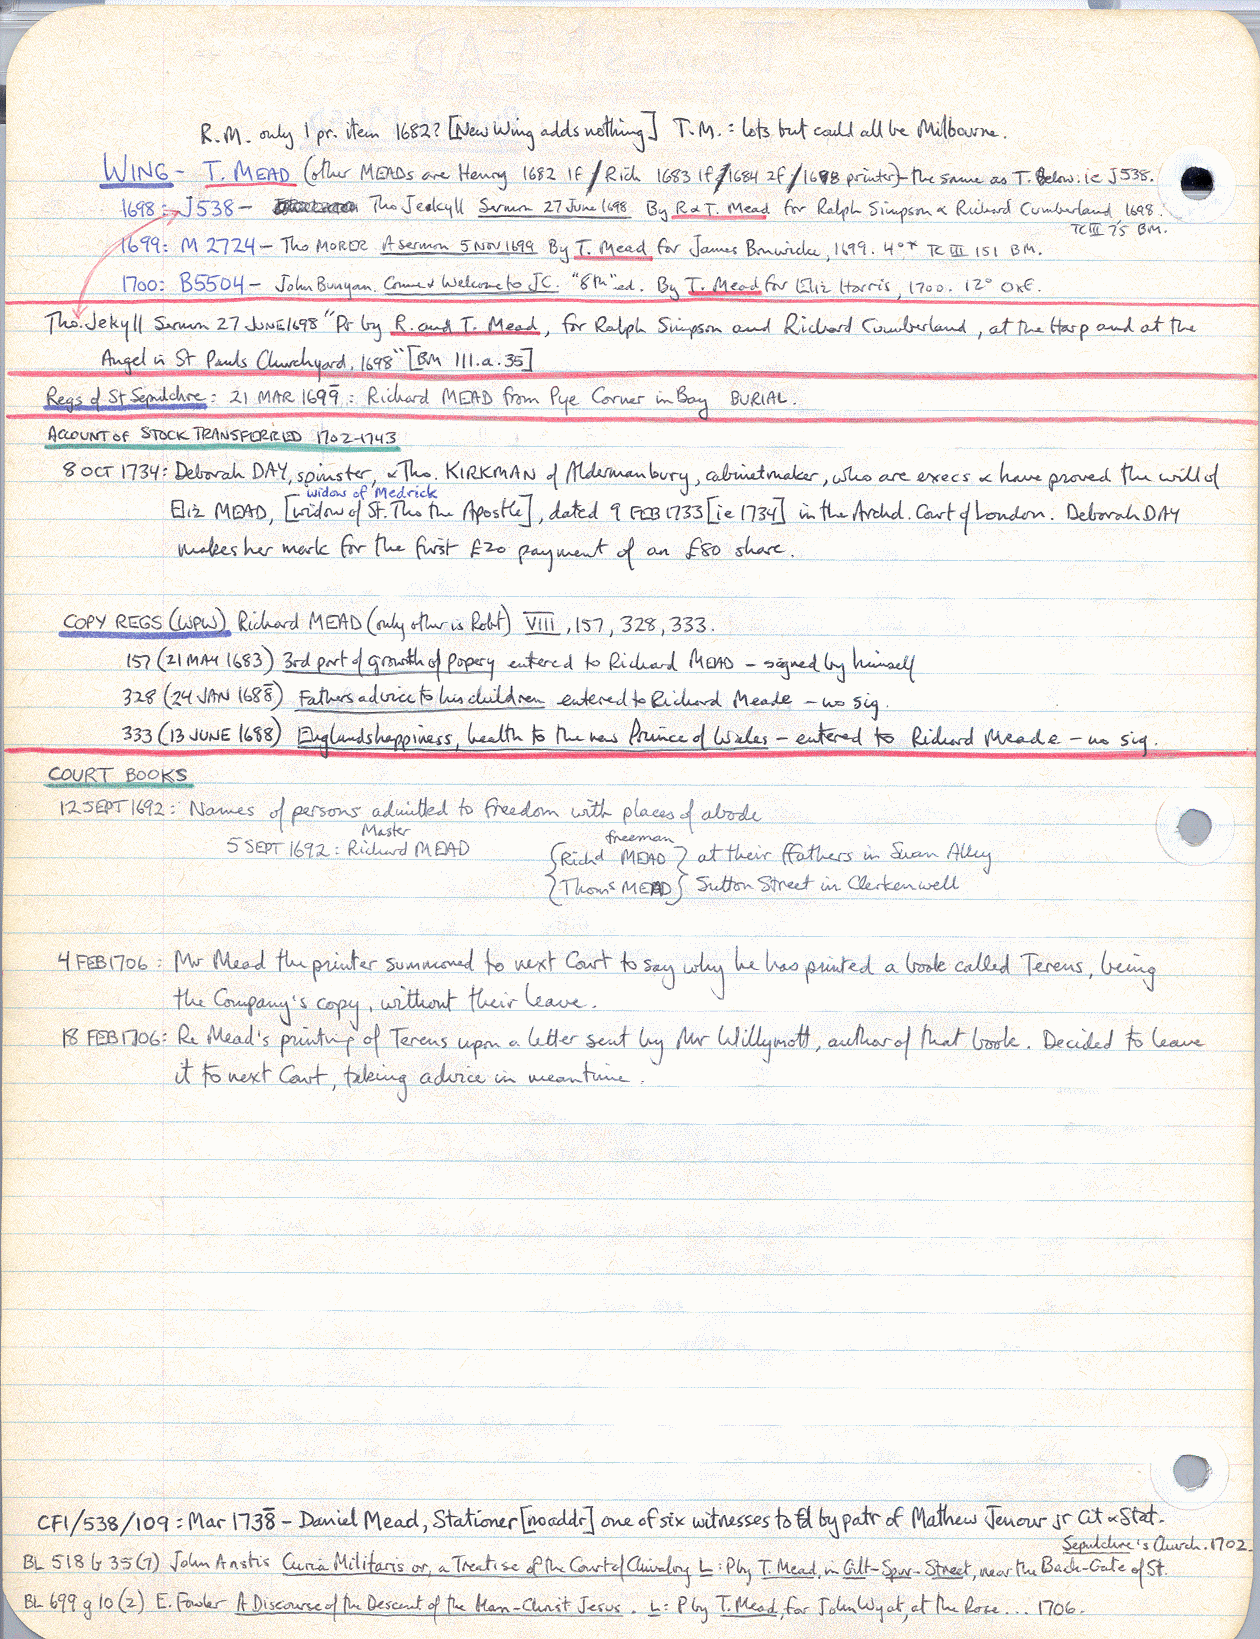 R.M. only 1 pr. item 1682? [New Wing adds nothing] T.M.: lots but could all be Milbourne.
WING - T. MEAD (other MEADs are Henry 1682 1f / Rich 1683 1f / 1684 2f / 1698 printer) - the same as T. Below: ie J538.
1698: J538 - Tho Jeekyll Sermon 27 June 1698 By R & T. Mead for Ralph Simpson & Richard Cumberland 1698.
TC III 75 BM.
1699: M 2724 - Tho MORER A sermon 5 NOV 1699 By T. Mead for James Bonwicke, 1699. 4°* TC III 151 BM.
1700: B5504 - John Bunyan. Come & Welcome to JC. "8th" ed. By T. Mead for Eliz Harris, 1700. 12° OXF.
Tho. Jekyll Sermon 27 JUNE 1698 "Pr by R. and T. Mead, for Ralph Simpson and Richard Cumberland, at the Harp and at the
Angel in St Pauls Churchyard, 1698" [BM 111.a.35]
Regs of St Sepulchre: 21 MAR 1699: Richard MEAD from Pye Corner in Bay BURIAL.
ACCOUNT OF STOCK TRANSFERRED 1702-1743
8 OCT 1734: Deborah DAY, spinster, & Tho. KIRKMAN of Aldermanbury, cabinetmaker, who are execs & have proved the will of
widow of Medrick
Eliz MEAD, [widow of St. Tho the Apostle], dated 9 FEB 1733 [ie 1734] in the Archd. Court of London. Deborah DAY
makes her mark for the first £20 payment of an £80 share.
COPY REGS (WPW) Richard MEAD (only other is Robt) VIII, 157, 328, 333.
157 (21 MAY 1683) 3rd part of growth of popery entered to Richard MEAD - signed by himself
328 (24 JAN 1688) Fathers advice to his children entered to Richard Meade - no sig.
333 (13 JUNE 1688) Englands happiness, health to the new Prince of Wales - entered to Richard Meade - no sig.
COURT BOOKS
12 SEPT 1692: Names of persons admitted to freedom with places of abode
Master freeman
5 SEPT 1692: Richard MEAD {Richd MEAD} at their ffathers in Swan Alley
{Thoms MEAD} Sutton Street in Clerkenwell
4 FEB 1706: Mr Mead the printer summoned to next Court to say why he has printed a book called Terens, being
the Company's copy, without their leave.
18 FEB 1706: Re Mead's printing of Terens upon a letter sent by Mr Willymott, author of that book. Decided to leave
it to next Court, taking advice in meantime.
CF1/538/109: Mar 1738 - Daniel Mead, Stationer [no addr] one of six witnesses to fd by patr of Mathew Jenour jr Cit & Stat.
Sepulchre's Church. 1702.
BL 518 b 35 (7) John Anstis Curia Militaris or, a Treatise of the Court of Chivalry L: P by T. Mead, in Gilt-Spur-Street, near the Back-Gate of St.
BL 699 g 10 (2) E. Fowler A Discourse of the Descent of the Man-Christ Jesus. L: P by T. Mead, for John Wyat, at the Rose... 1706.